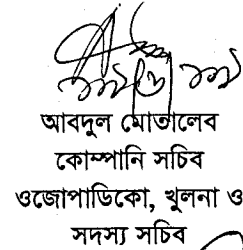 আবদুল মোতালেব
কোম্পানি সচিব
ওজোপাডিকো, খুলনা ও
সদস্য সচিব